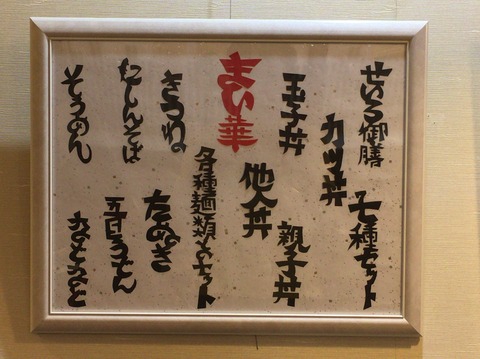 せいろ御膳
七種セット
カツ丼
玉子丼
親子丼
まい華
他人丼
各種麺類とのセット
きつね
たぬき
にしんそば
五目うどん
そうめん